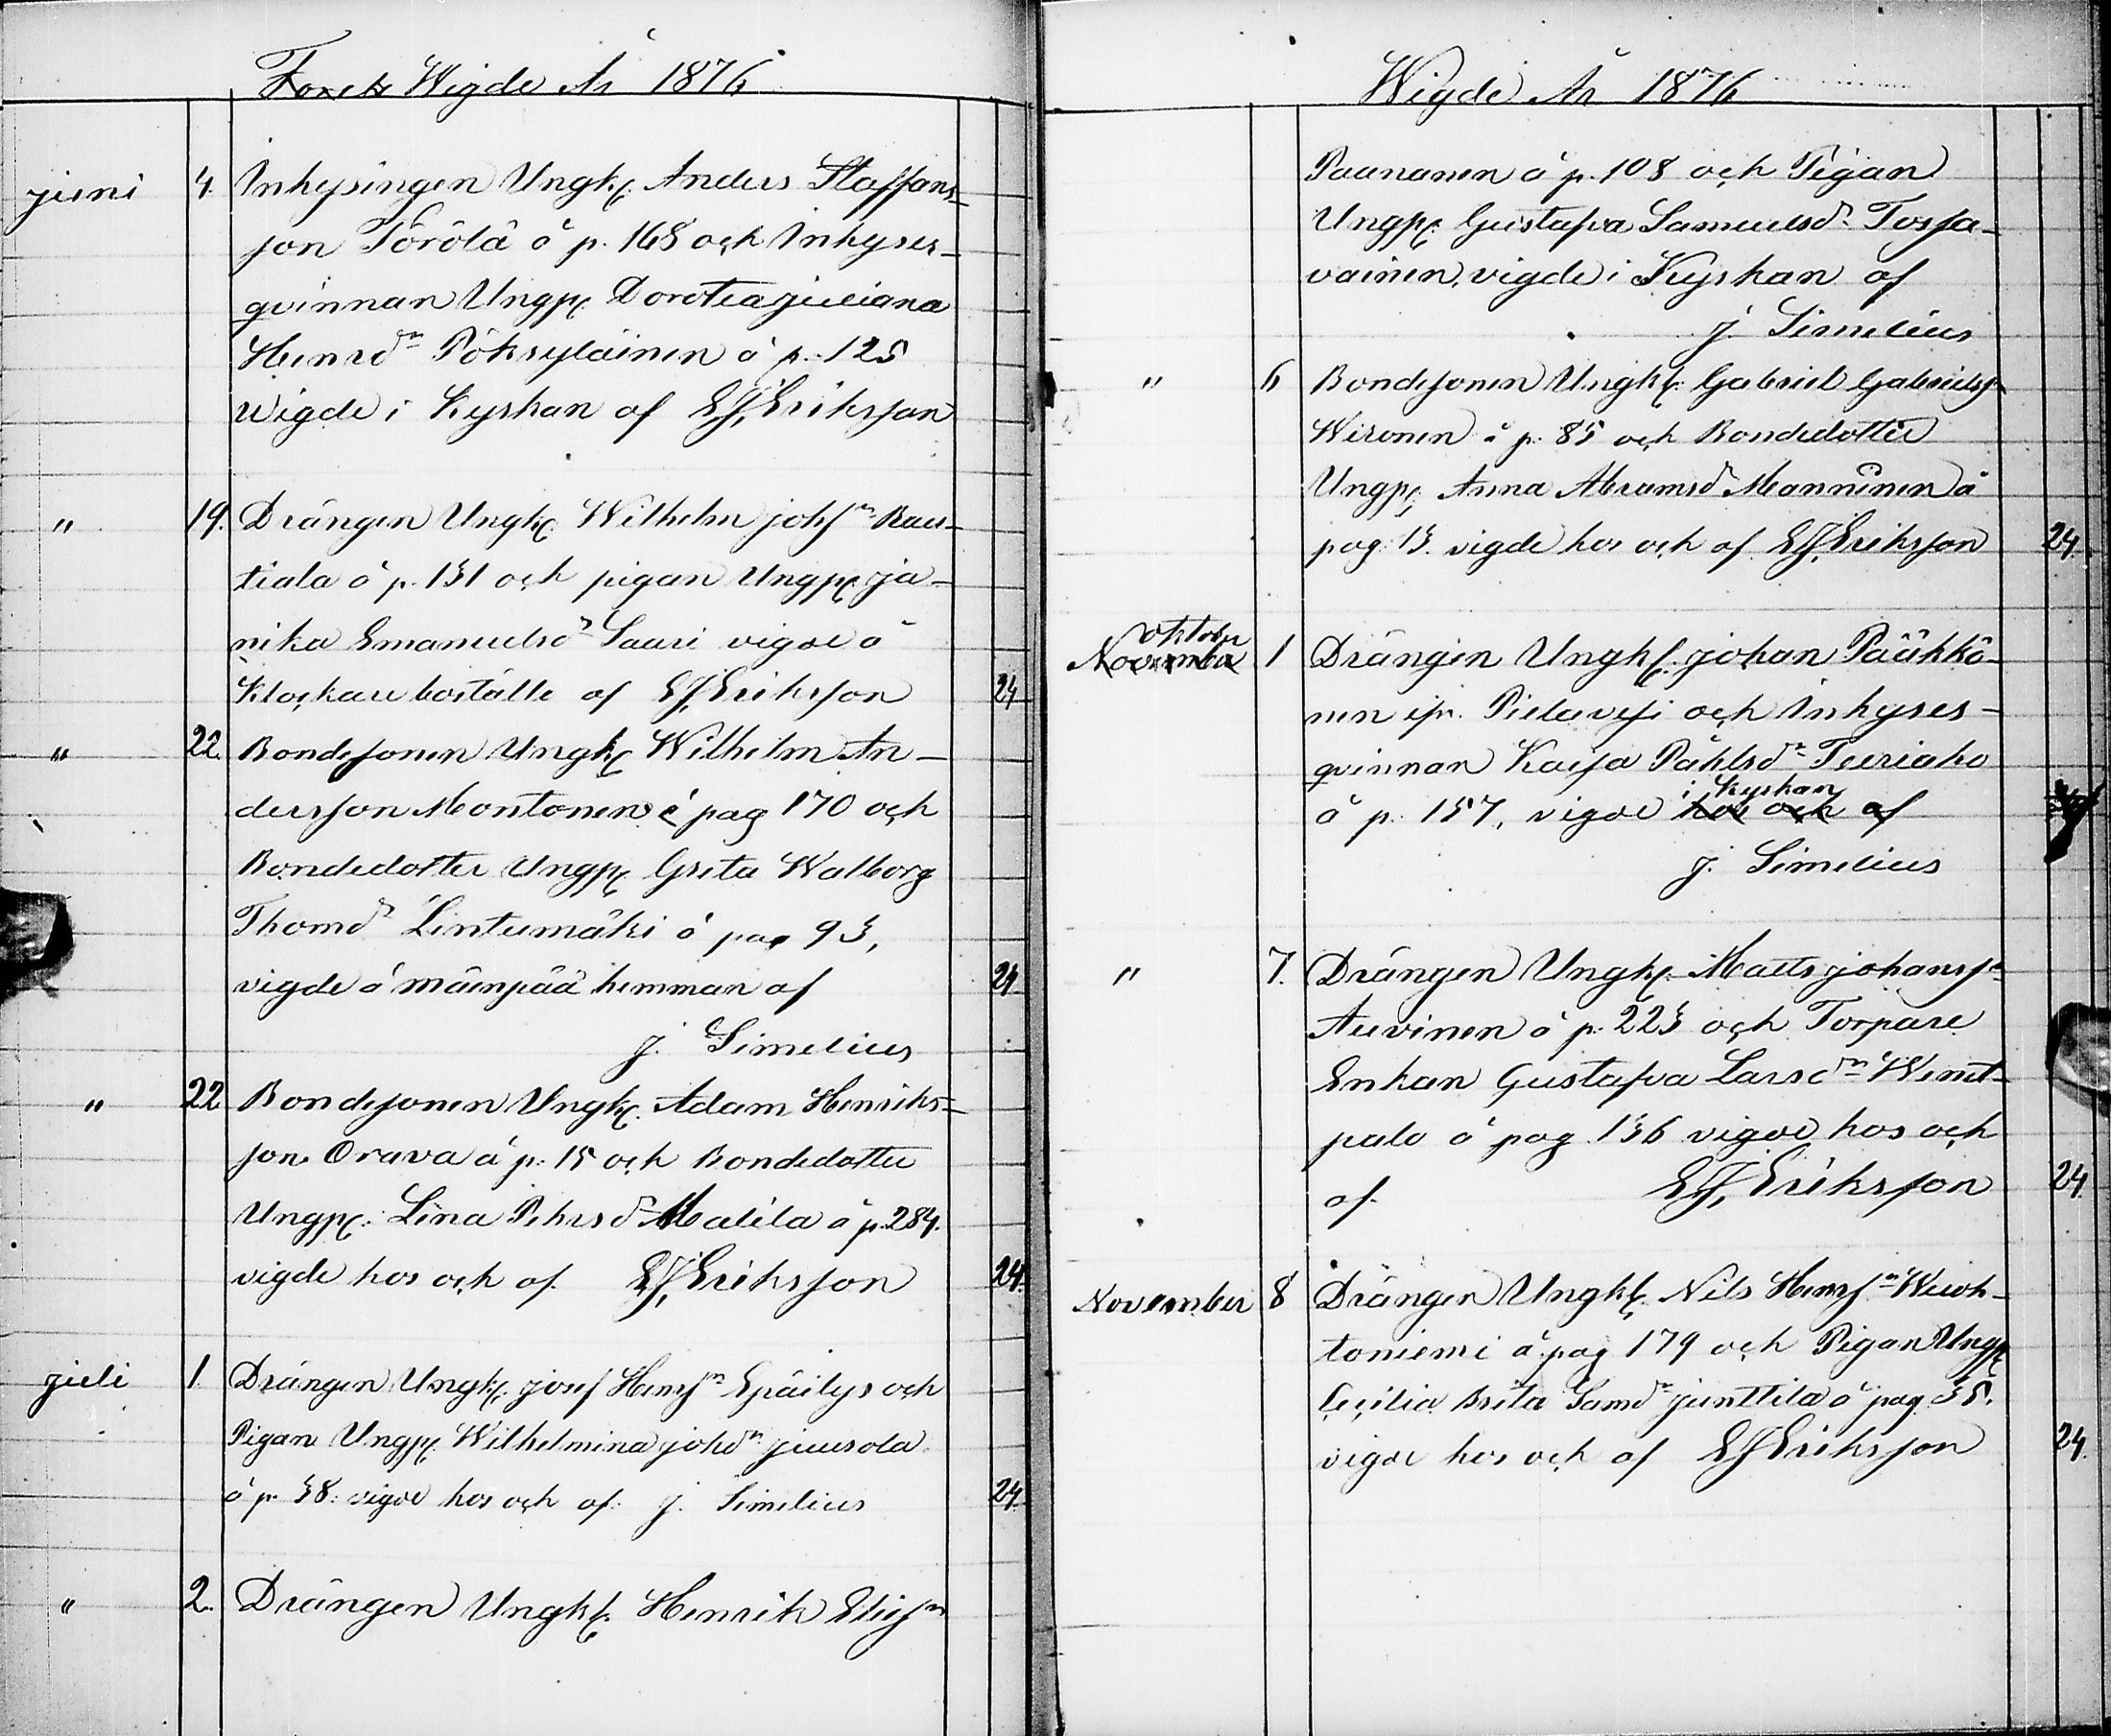 Wigde År 1876
juni 4. Inhysingen Ungk. Anders Staffans-
son Törölä å p. 168 och Inhyses-
qvinnan Ungp. Dorotea Juliana
Henrsdr Pöksyläinen å p. 125
wigde i Kyrkan af EJ, Eriksson
" 19. Drängen Ungk. Wilhelm Johsn Rau-
tiala å p. 131 och pigan Ungp. Ja-
nika Emanuelsdr Saari vigde å
Klockare boställe af EJ, Eriksson 24
" 22. Bondesonen Ungk. Wilhelm An-
dersson Montonen å pag 170 och
Bondedotter Ungp. Greta Walborg
Thomdr Lintumäki å pag 93,
vigde å mäenpää hemman af 24
J. Simelius
" 22 Bondesonen Ungk. Adam Henriks-
son Orava å p. 15 och Bondedotter
Ungp. Lina Pehrsdr Matila å p. 284.
vigde hos och af EJ, Eriksson 24.
juli 1. Drängen Ungk. Josef Henrsn Epäilys och
Pigan Ungp. Wilhelmina Johdr Juusola
å p. 38: vigde hos och af: J. Simelius 24.
" 2. Drängen Ungk. Henrik Eliesn
Wigde År 1876
Paananen å p. 108 och Pigan
Ungp. Gustafva Samuelsdr Tossa-
vainen, vigde i Kyrkan af
J. Simelius
" 6 Bondesonen Ungk. Gabriel Gabrielsn
Wironen å p. 85 och Bondedotter
Ungp. Anna Abramsdr Manninen å
pag. 13. vigde hos och af EJ, Eriksson 24.
oktober
November 1 Drängen Ungk. Johan Pääkkö-
nen ifr. Pielavesi och Inhyses-
qvinnan Kaisa Påhlsdr Teeriaho
i Kyrkan
å p. 157, vigde hos och af
J. Simelius
" 7. Drängen Ungk. Matts Johanssn
Auvinen å p. 223 och Torpare
Enkan Gustafva Larsdr Wimt-
palo å pag. 136 vigde hos och
af EJ, Eriksson 24.
November 8 Drängen Ungk. Nils Henrsn Wuoh-
toniemi å pag 179 och Pigan Ungp.
Cecilia Brita Samdr Junttila å pag. 35.
vigde hos och af EJ Eriksson 24.